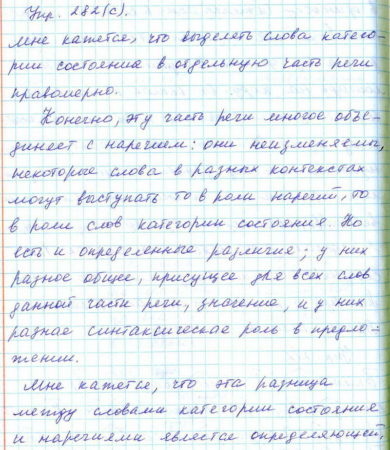 Упр. 282(с).
Мне кажется, что выделять слова катего-
рии состояния в отдельную часть речи
правомерно.
Конечно, эту часть речи многое объе-
диняет с наречием: они неизменяемы,
некоторые слова в разных контекстах
могут выступать то в роли наречий, то
в роли слов категории состояния. Но
есть и определенные различия; у них
разное общее, присущее для всех слов
данной части речи, значение, и у них
разная синтаксическая роль в предло-
жении.
Мне кажется, что эта разница
между словами категории состояния
и наречиями является определяющей,